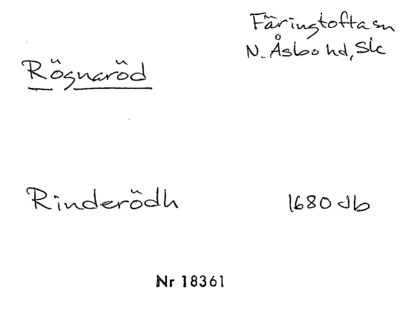 Färingtofta sn
N. Åsbo hd, Sk
Rögnaröd
Rinderödh 1680 Jb
Nr 18361